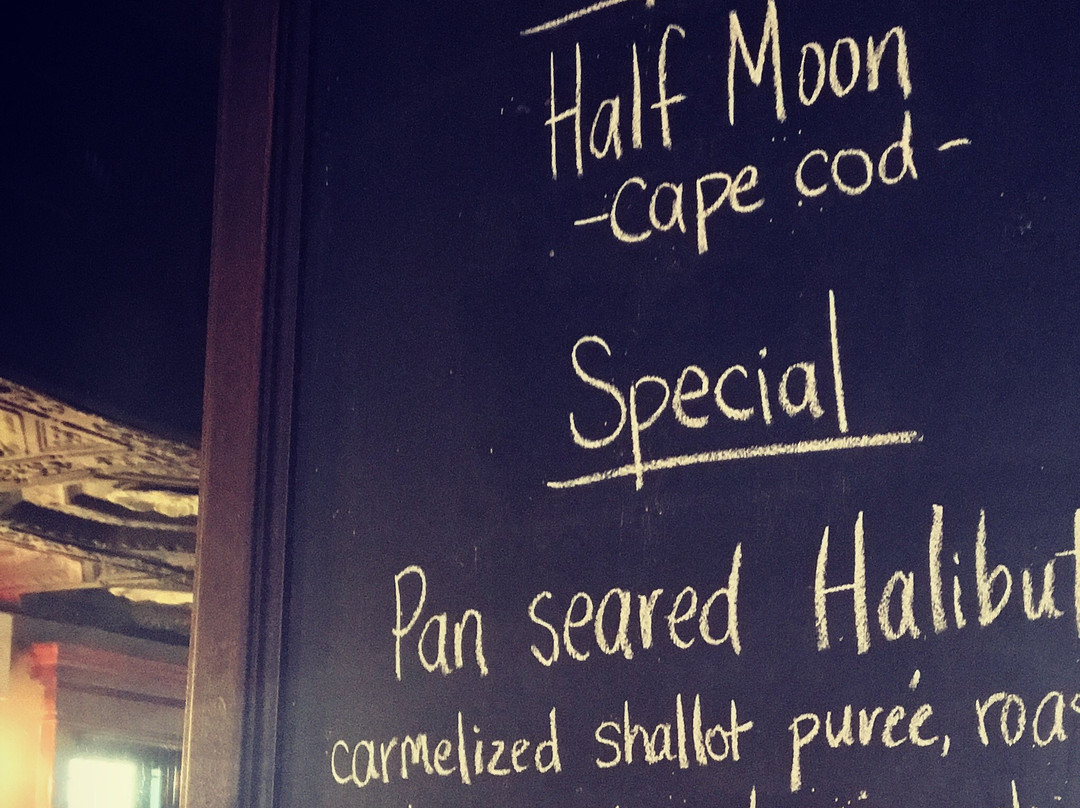 Half Moon
-Cape Cod-
Special
Pan seared Halibut
carmelized shallot purée, roas